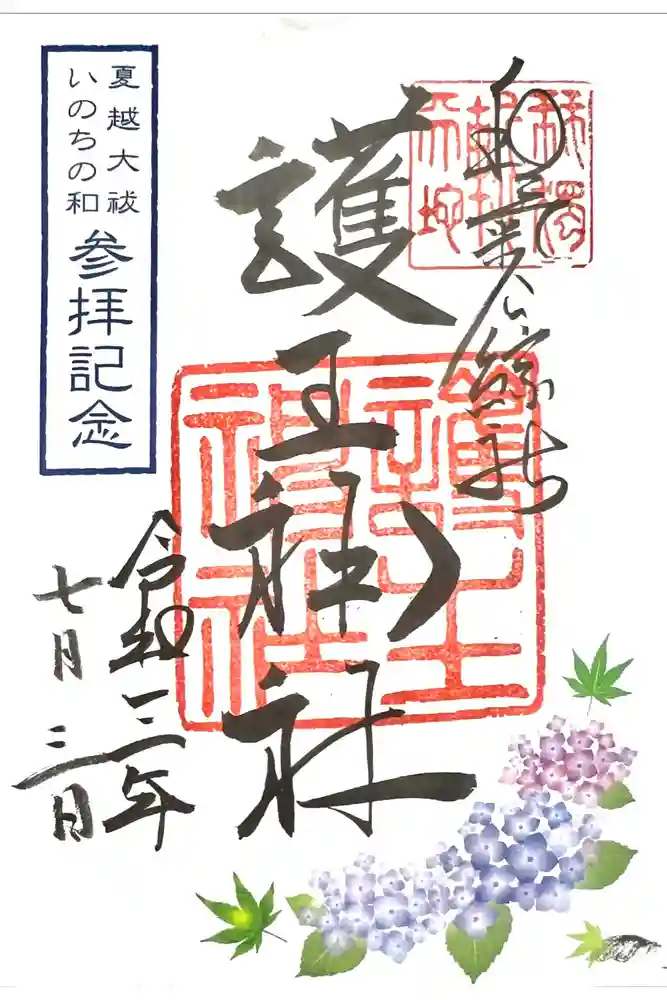 和氣公綜社
護王神社
令和三年
七月三日
夏越大祓
いのちの和
参拝記念
護王
神社